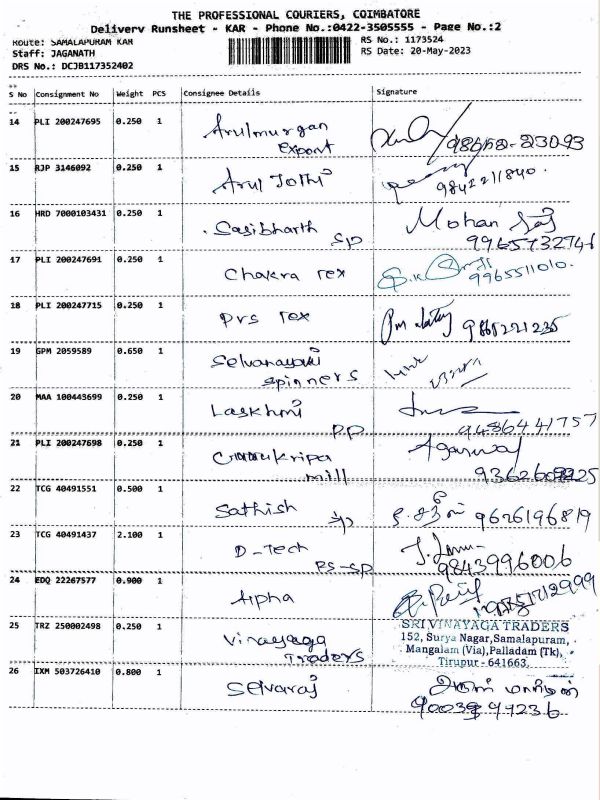 THE PROFESSIONAL COURIERS, COIMBATORE
Delivery Runsheet - KAR - Phone No.:0422-3505555 - Page No.:2
Route: SAMALAPURAM KAR
RS No.: 1173524
Staff: JAGANATH
RS Date: 20-May-2023
DRS No.: DCJB117352402
S No Consignment No Weight PCS Consignee Details Signature
14 PLI 200247695 0.250 1 Arulmurgan
Export
15 RJP 3146092 0.250 1 Arul Jothi
9842211840.
16 HRD 7000103431 0.250 1 Sasibharth Mohan
SP 9965732746
17 PLI 200247691 0.250 1 Chakra Tex
9965511010.
18 PLI 200247715 0.250 1 PVS Tex
19 GPM 2059589 0.650 1 Selvanayaki
Spinners
20 MAA 100443699 0.250 1 Laskhmi
PP 9486441757
21 PLI 200247698 0.250 1 Agarwal
mill
22 TCG 40491551 0.500 1 Sathish
9626196819
23 TCG 40491437 2.100 1 D-Tech
PS-SP 9843996006
24 EDQ 22267577 0.900 1 Alpha
25 TRZ 250002498 0.250 1 Vinayaga
Traders
SRI VINAYAGA TRADERS
152, Surya Nagar,Samalapuram,
Mangalam (Via),Palladam (Tk),
Tirupur - 641663.
26 IXM 503726410 0.800 1 Selvaraj